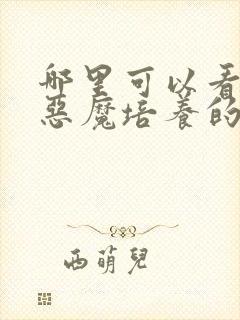 哪里可以看
惡魔培養的
西萌兒